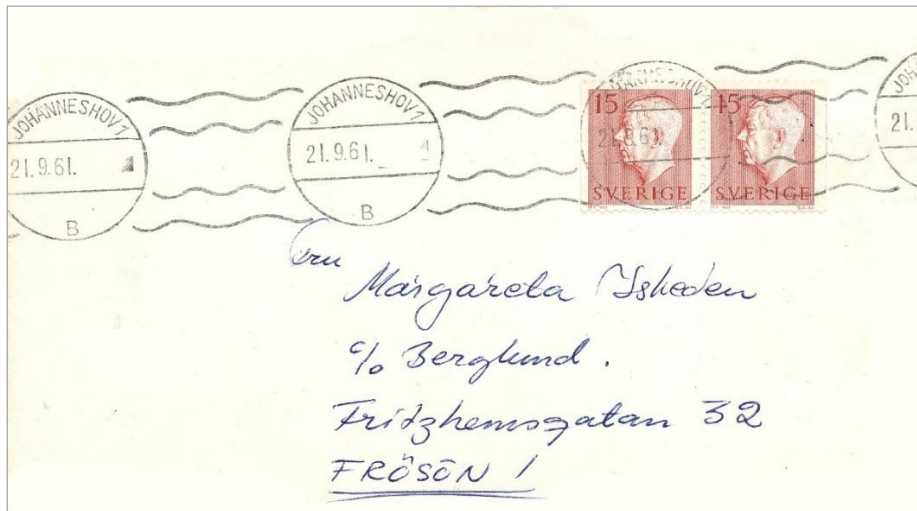 JOHANNESHOV 1
21.9.61. 1
B
JOHANNESHOV 1
21.9.61. 1
B
JOHANNESHOV 1
21.9.61.
15
SVERIGE
15
SVERIGE
21.
Fru
Margareta Isheden
c/o Berglund.
Fritzhemsgatan 32
FRÖSÖN 1